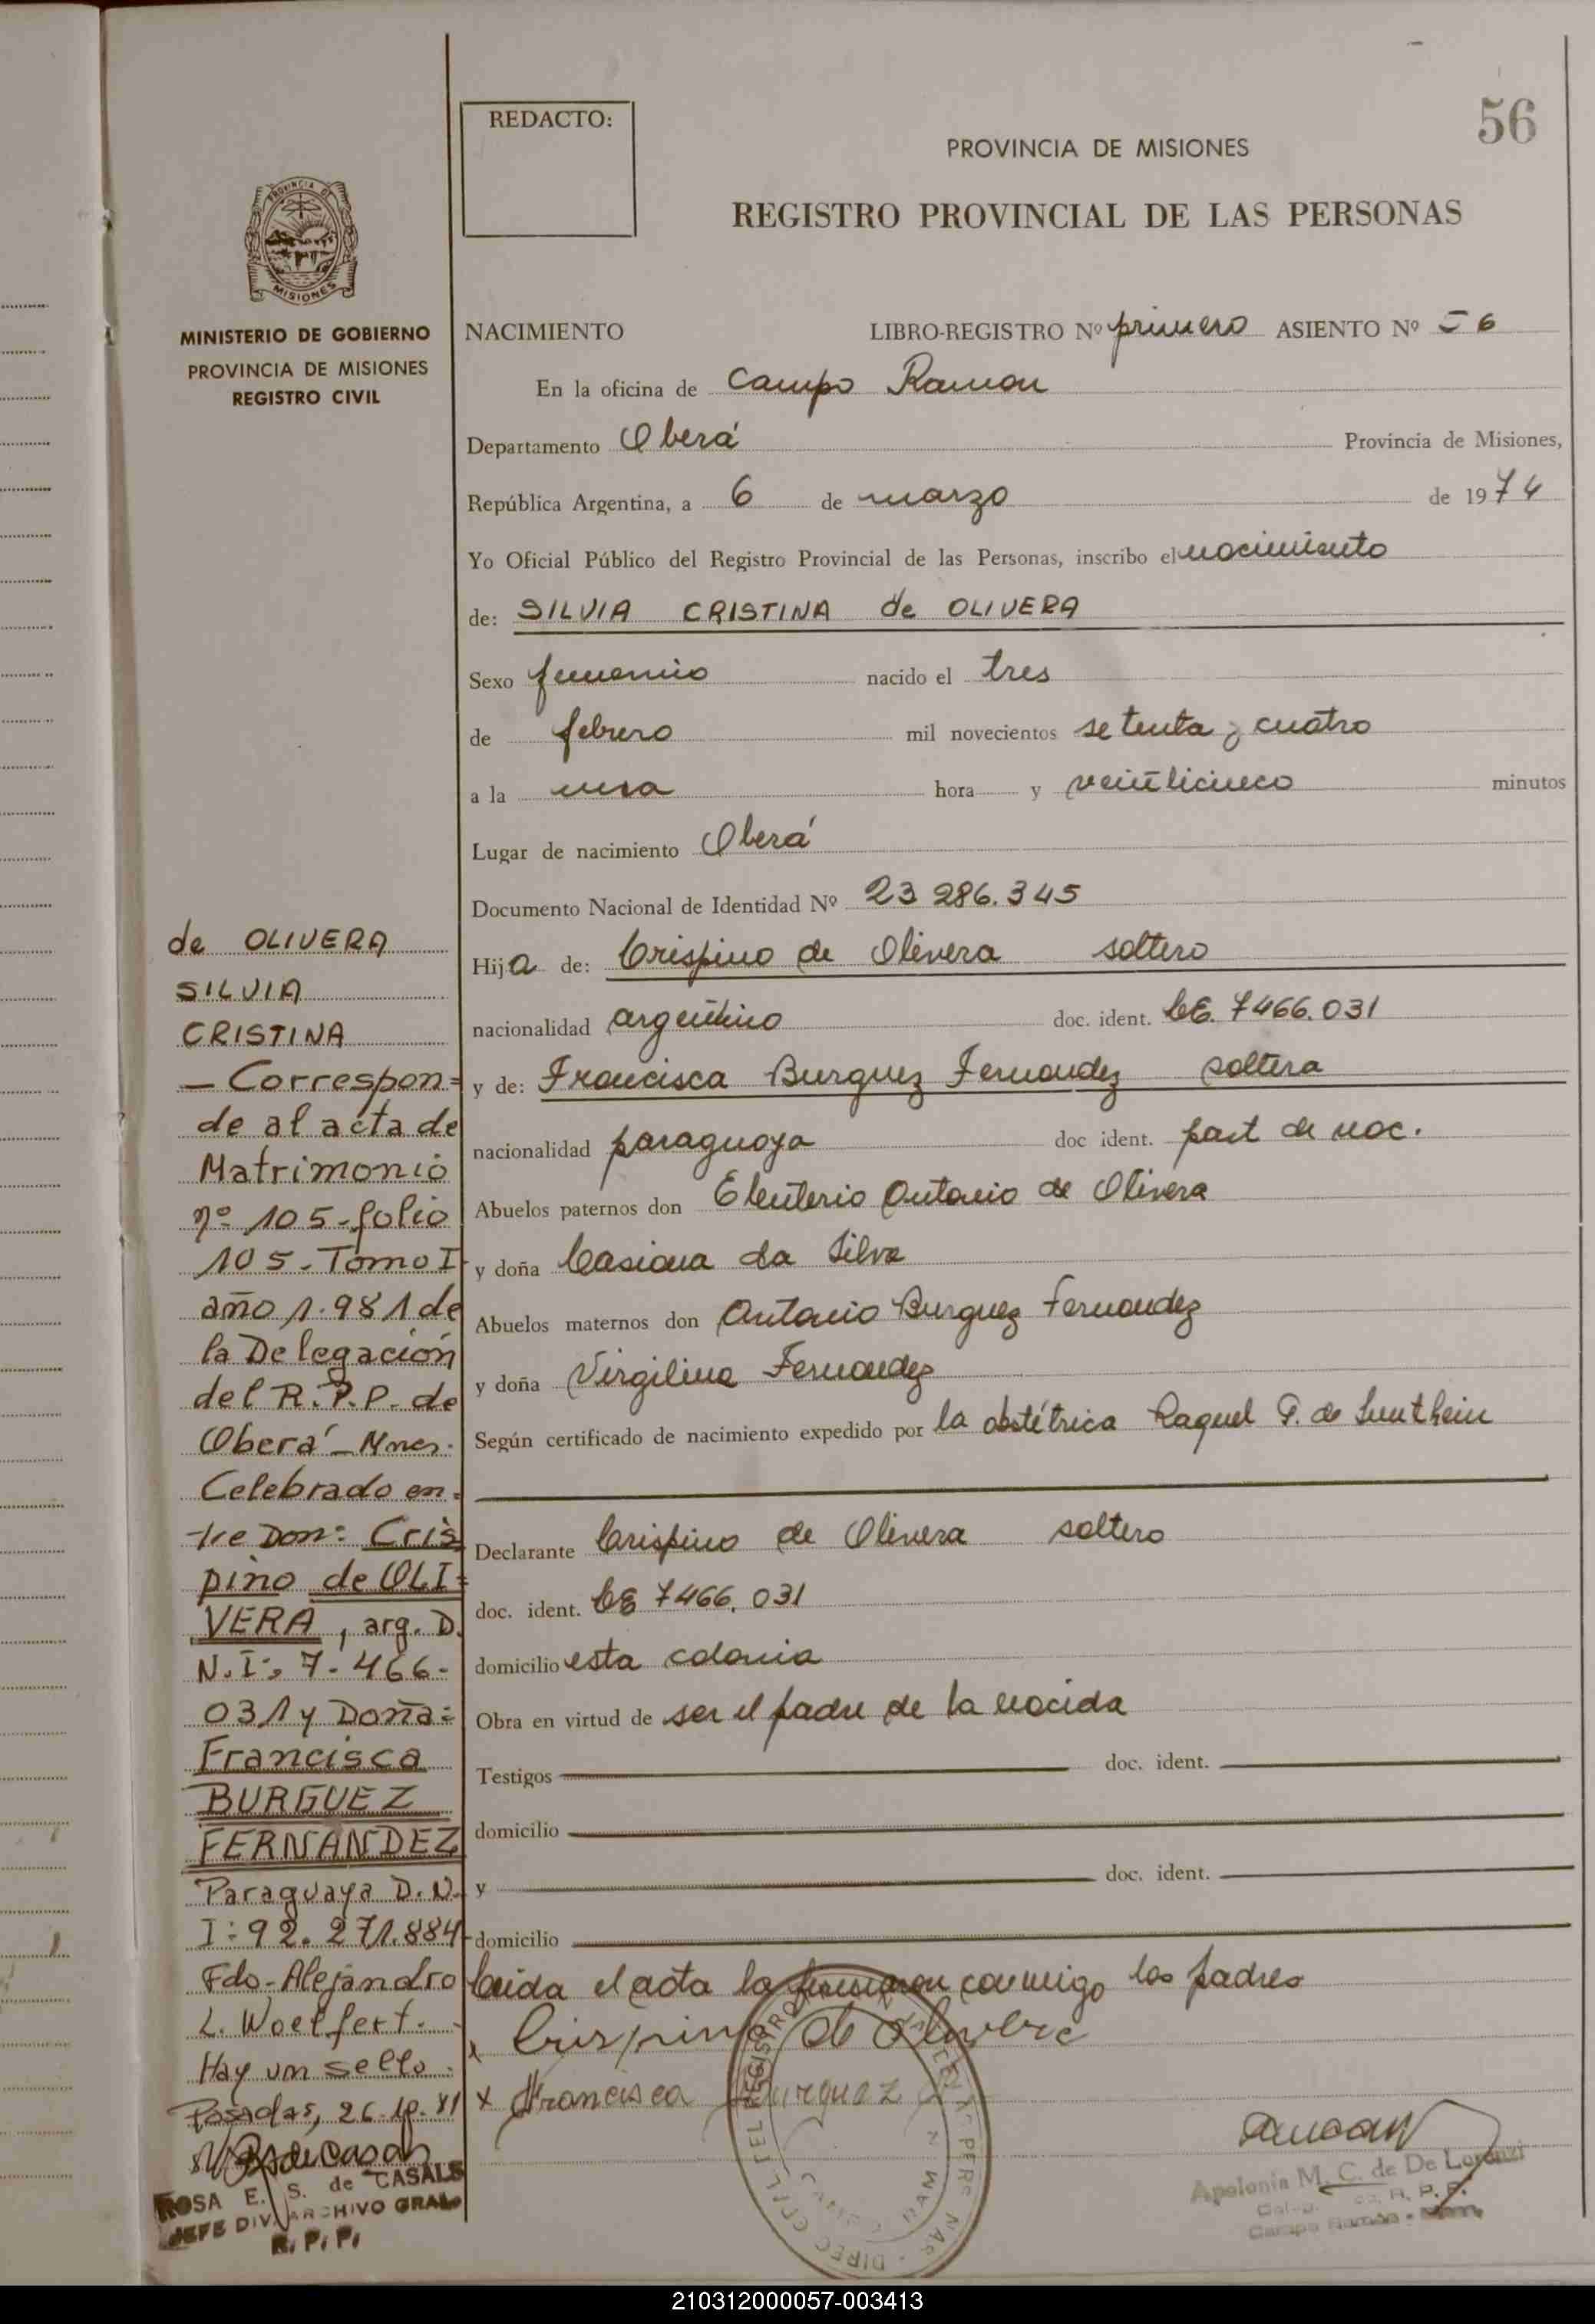 56
REDACTO:
PROVINCIA DE MISIONES
REGISTRO PROVINCIAL DE LAS PERSONAS
PROVINCIA DE
MISIONES
MINISTERIO DE GOBIERNO
PROVINCIA DE MISIONES
REGISTRO CIVIL
NACIMIENTO LIBRO-REGISTRO Nº primero ASIENTO Nº 56
En la oficina de Campo Ramon
Departamento Oberá Provincia de Misiones,
República Argentina, a 6 de marzo de 1974
Yo Oficial Público del Registro Provincial de las Personas, inscribo el nacimiento
de: SILVIA CRISTINA de OLIVERA
Sexo femenino nacido el tres
de febrero mil novecientos setenta y cuatro
a la una hora y veinticinco minutos
Lugar de nacimiento Oberá
Documento Nacional de Identidad Nº 23 286.345
Hija de: Crispino de Olivera soltero
nacionalidad argentino doc. ident. CE. 7466.031
y de: Francisca Burguez Fernandez soltera
nacionalidad paraguaya doc ident. part de nac.
Abuelos paternos don Eleuterio Antonio de Olivera
y doña Casiana da Silva
Abuelos maternos don Antonio Burguez Fernandez
y doña Virgilina Fernandez
Según certificado de nacimiento expedido por la obstétrica Raquel de
Declarante Crispino de Olivera soltero
doc. ident. CE 7466.031
domicilio esta colonia
Obra en virtud de ser el padre de la nacida
Testigos doc. ident.
domicilio
y doc. ident.
domicilio
Leida el acta la firmaron conmigo los padres
x Crispino de Olivera
x Francisca Burguez
Apolonia M. C. de De Lorenzi
R. P. P.
Campo Ramón
de OLIVERA
SILVIA
CRISTINA
— Correspon=
de al acta de
Matrimonio
nº 105-folio
105-Tomo I
año 1.981 de
la Delegación
del R.P.P. de
Oberá-Mnes.
Celebrado en=
tre Don: Cris
pino de OLI=
VERA, arg. D.
N.I: 7.466-
031 y Doña:
Francisca
BURGUEZ
FERNÁNDEZ
Paraguaya D.N.
I: 92.271.884-
Fdo-Alejandro
L. Woelfert.-
Hay un sello.
Posadas, 26.10.81
ROSA E. S. de CASALS
JEFE DIV. ARCHIVO GRAL.
R. P. P.
210312000057-003413